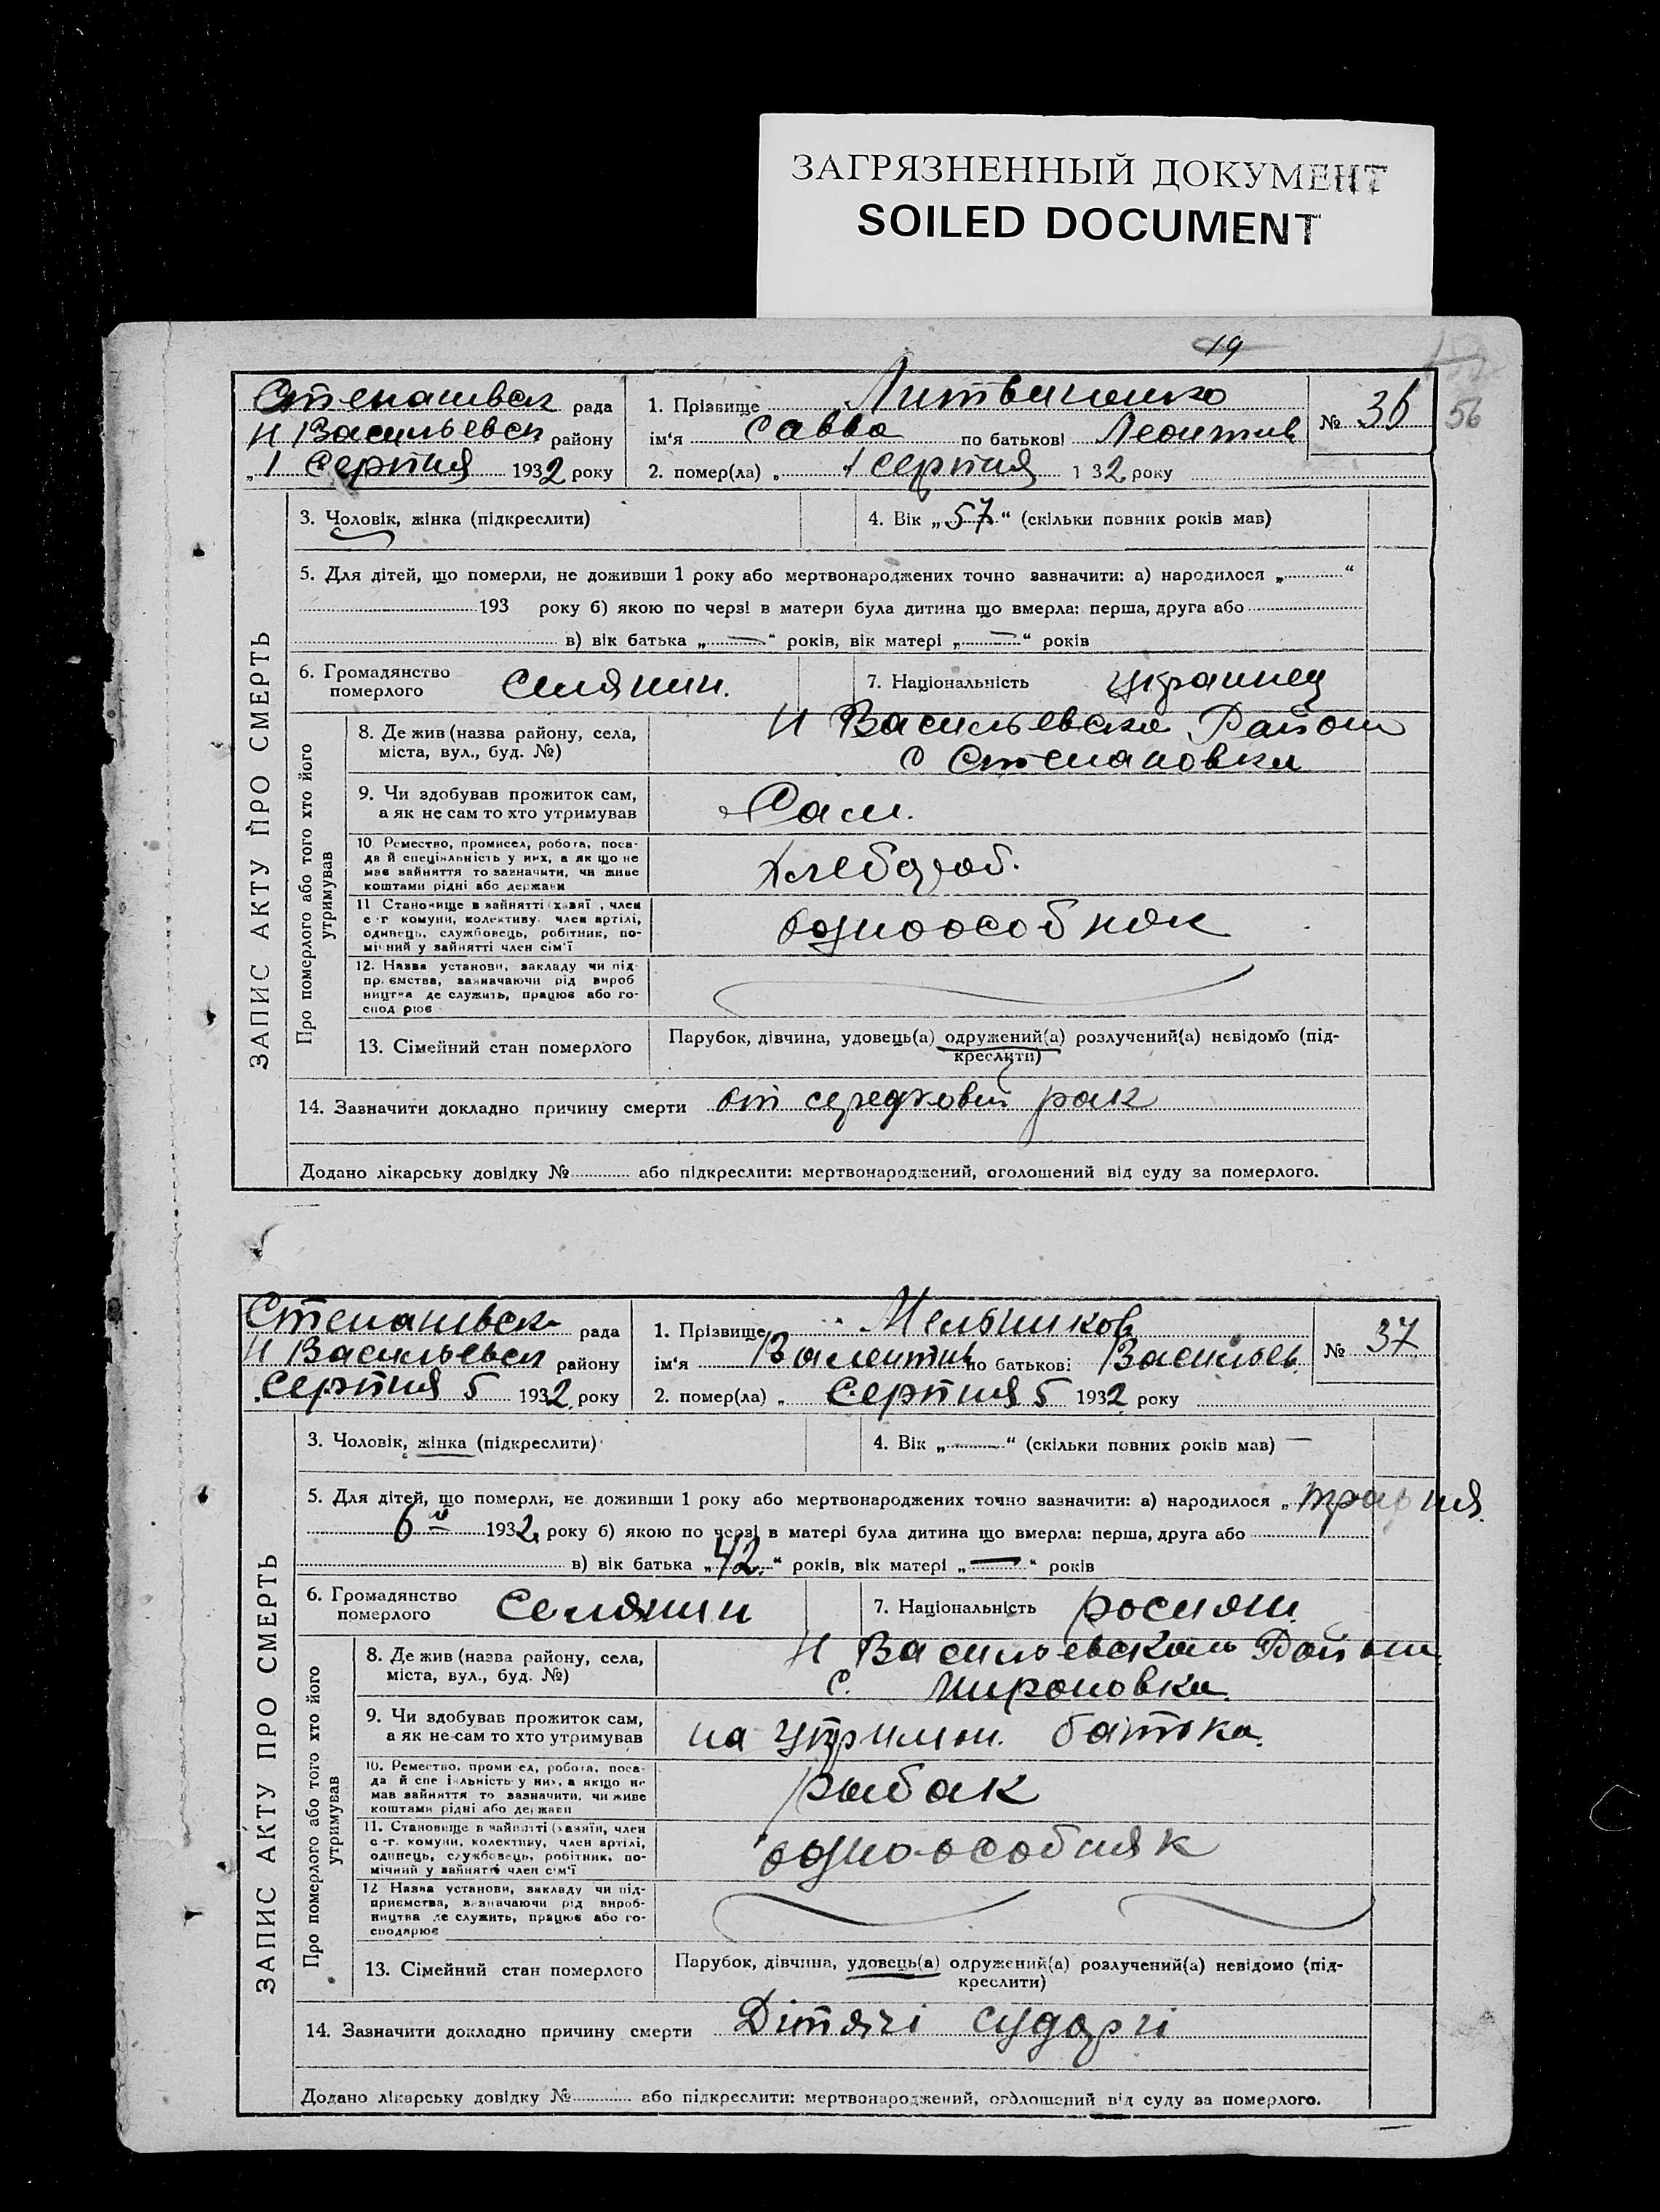 ЗАГРЯЗНЕННЫЙ ДОКУМЕНТ
SOILED DOCUMENT
19
56
ЗАПИС АКТУ ПРО СМЕРТЬ
рада
Н Васильевск району
„1 Серпня 1932 року
1. Прізвище Литвиненко
ім‘я Савва по батькові Леонтиев
№ 36
2. помер(ла) „ 1 серпня 1 32 року
3. Чоловік, жінка (підкреслити)
4. Вік „57“ (скільки повних років мав)
5. Для дітей, що померли, не доживши 1 року або мертвонароджених точно зазначити: а) народилося „ “
193 року б) якою по черзі в матери була дитина що вмерла: перша, друга або
в) вік батька „—“ років, вік матері „—“ років
6. Громадянство померлого Селянин.
7. Національність украинец
Про померлого або того хто його утримував
8. Де жив (назва району, села,
міста, вул., буд. №)
Н Васильевска Район
с Степановка
9. Чи здобував прожиток сам,
а як не сам то хто утримував
Сам.
10 Ремество, промисел, робота, поса-
да й спеціяльність у них, а як що не
має зайняття то зазначити, чи живе
коштами рідні або держави
Хлебороб.
11 Становище в зайнятті (хазяї, член
с-г комуни, колективу, член артілі,
одинець, службовець, робітник, по-
мічний у зайнятті член сім'ї
одноособник
12. Назва установи, закладу чи під-
приємства, зазначаючи рід вироб
ництва де служить, працює або го-
сподарює
13. Сімейний стан померлого
Парубок, дівчина, удовець(а) одружений(а) розлучений(а) невідомо (під-
креслити)
14. Зазначити докладно причину смерти от рак
Додано лікарську довідку № або підкреслити: мертвонароджений, оголошений від суду за померлого.
ЗАПИС АКТУ ПРО СМЕРТЬ
рада
Н Васильевск району
„Серпня 5 1932 року
1. Прізвище Мельников
ім‘я Валентин по батькові Васильев
№ 37
2. помер(ла) „ Серпня 5 1932 року
3. Чоловік, жінка (підкреслити)
4. Вік „ “ (скільки повних років мав) —
5. Для дітей, що померли, не доживши 1 року або мертвонароджених точно зазначити: а) народилося „ травня
6 1932 року б) якою по черзі в матері була дитина що вмерла: перша, друга або
в) вік батька „42“ років, вік матері „—“ років
6. Громадянство померлого Селянин
7. Національність росиян
Про померлого або того хто його утримував
8. Де жив (назва району, села,
міста, вул., буд. №)
Н Васильевском Район
с. Мироновка
9. Чи здобував прожиток сам,
а як не сам то хто утримував
на утриман. батька
10. Ремество, промисел, робота, поса-
да й спеціяльність у них, а якщо не
мав зайняття то зазначити, чи живе
коштами рідні або держави
рыбак
11. Становище в зайнятті (хазяїн, член
с-г. комуни, колективу, член артілі,
одинець, службовець, робітник, по-
мічний у зайнятті член сім'ї
одноособняк
12 Назва установи, закладу чи під-
приємства, зазначаючи рід вироб-
ництва де служить, працює або го-
сподарює
13. Сімейний стан померлого
Парубок, дівчина, удовець(а) одружений(а) розлучений(а) невідомо (під-
креслити)
14. Зазначити докладно причину смерти Дітячі судоргі
Додано лікарську довідку № або підкреслити: мертвонароджений, оголошений від суду за померлого.